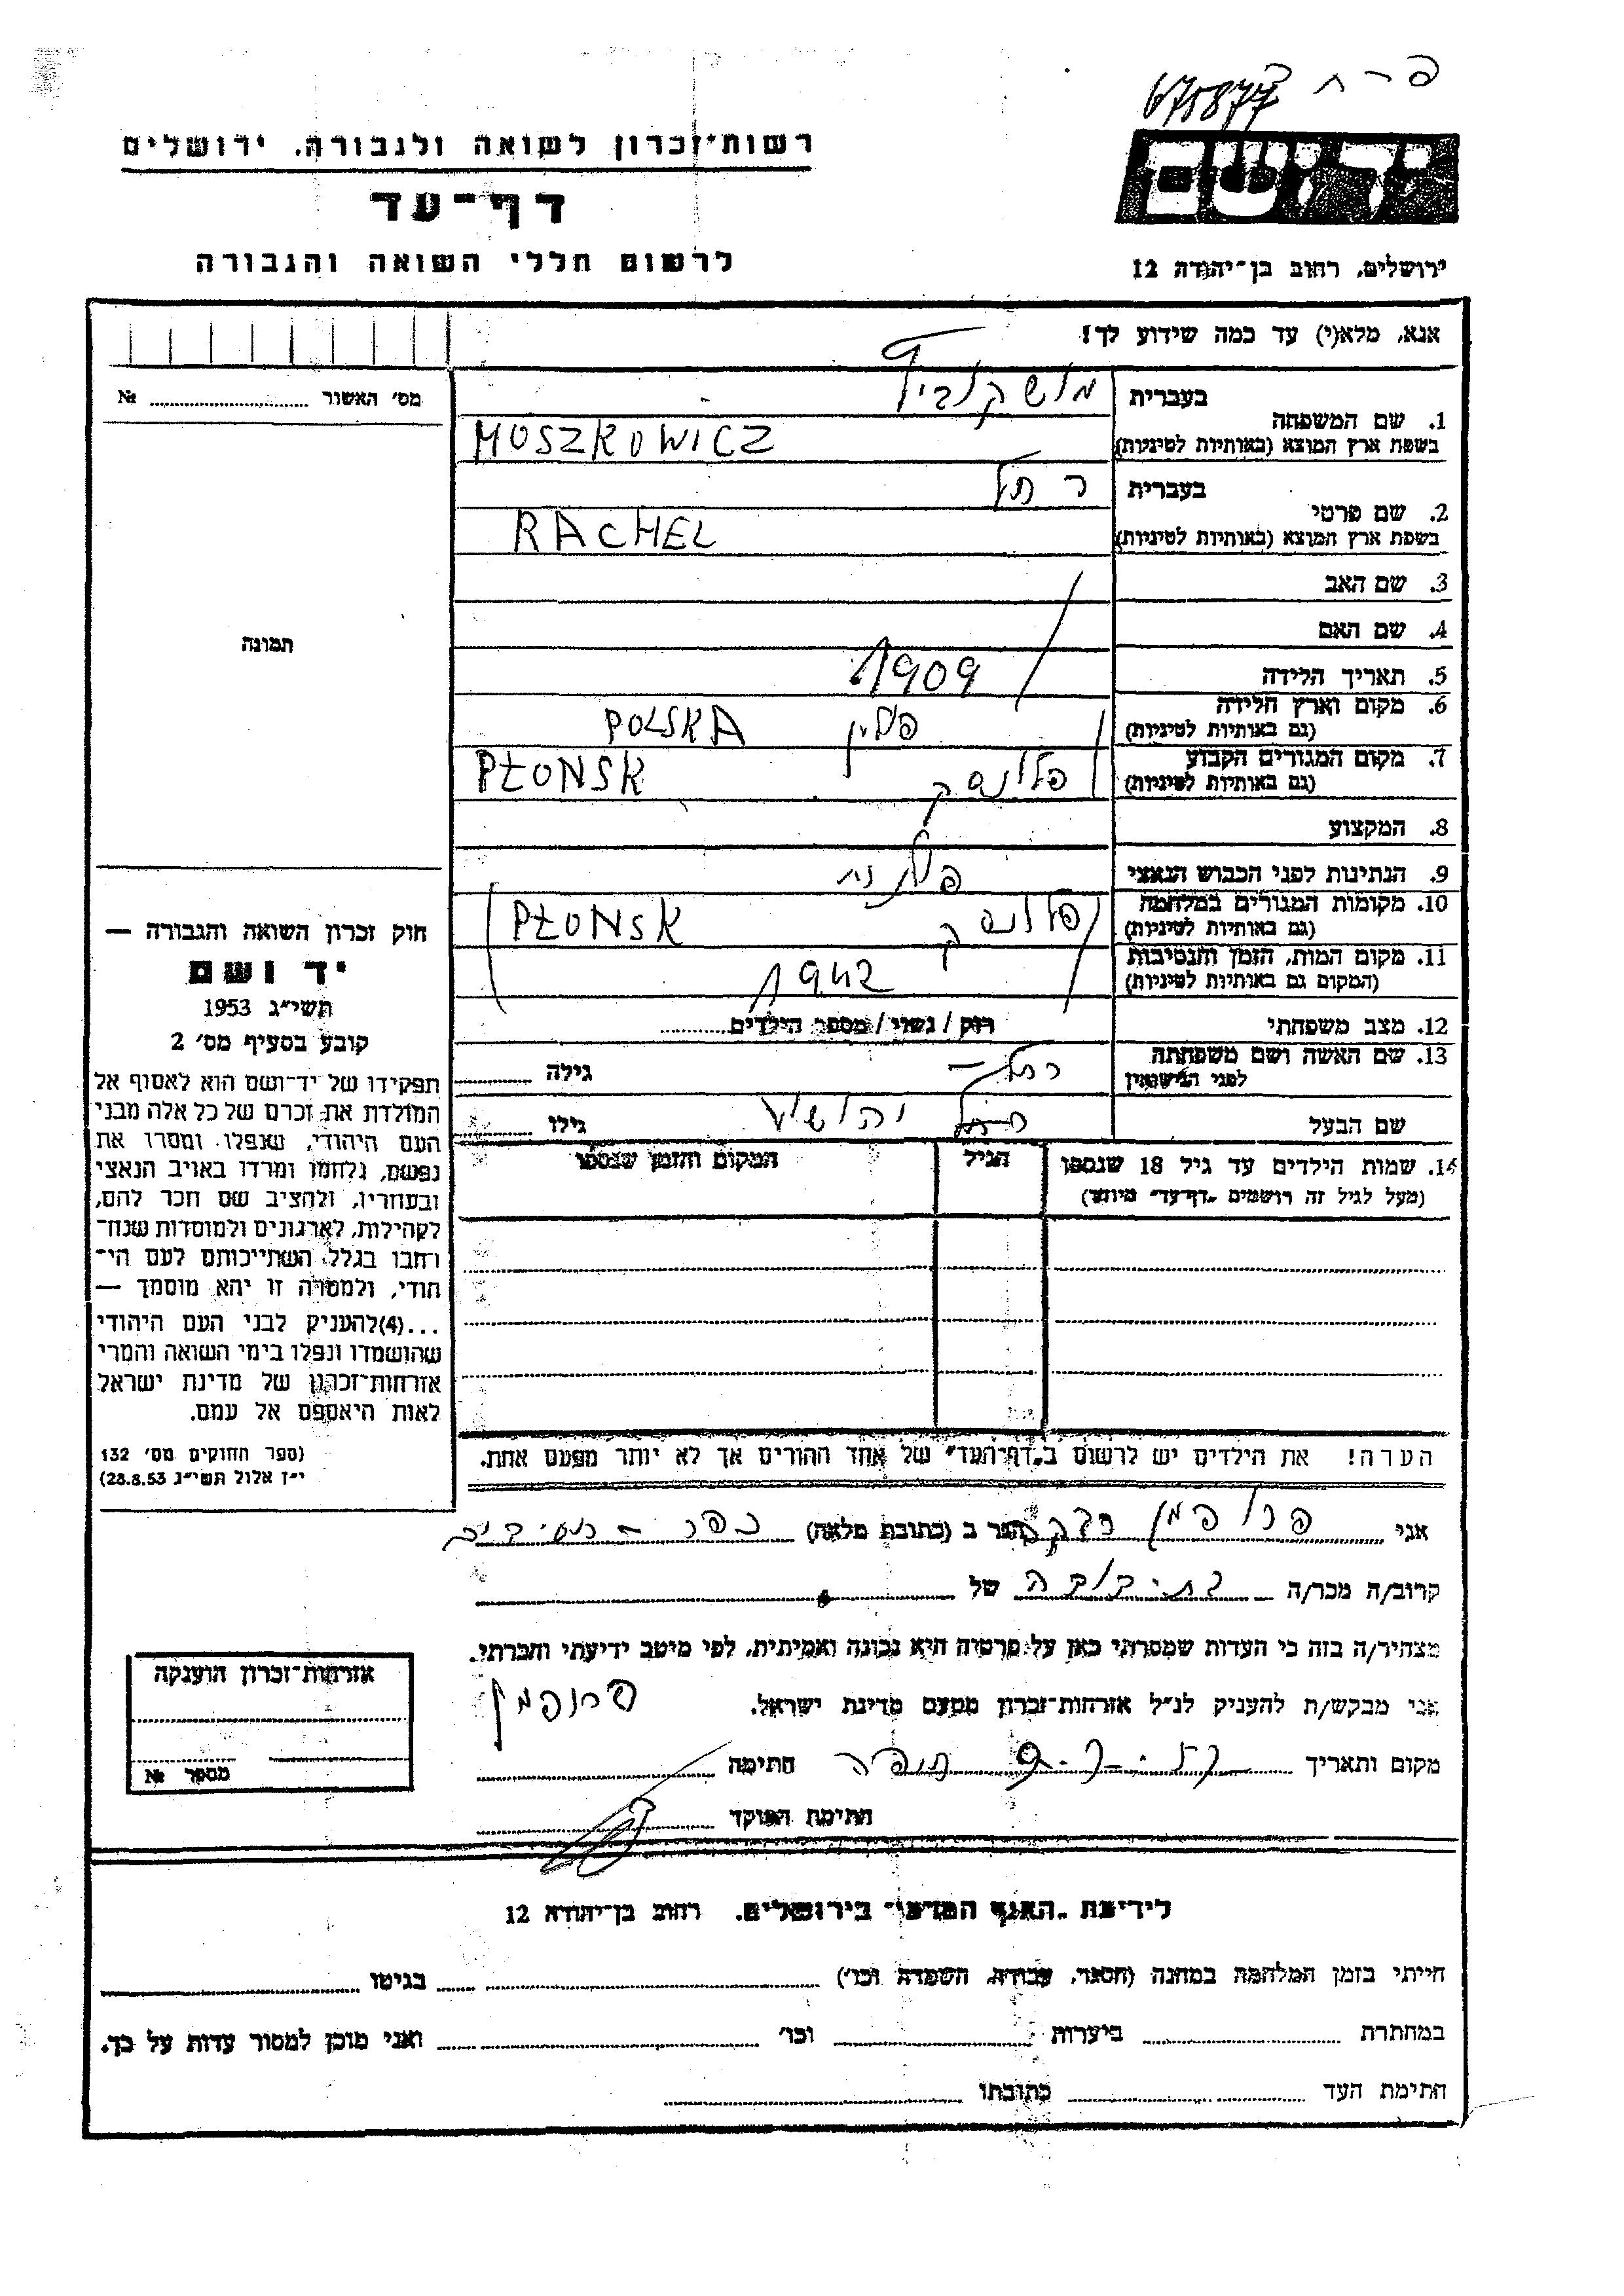 675877
רשות־זכרון לשואה ולגבורה. ירושלים
יד ושם
דף־עד
לרשום חללי השואה והגבורה
ירושלים, רחוב בן־יהודה 12
אנא, מלא(י) עד כמה שידוע לך!
מס׳ האשור № 
בעברית מושקוביץ
1. שם המשפחה
בשפת ארץ המוצא (באותיות לטיניות) MOSZKOWICZ
בעברית רחל
2. שם פרטי
בשפת ארץ המוצא (באותיות לטיניות) RACHEL
3. שם האב
4. שם האם
5. תאריך הלידה 1909
6. מקום וארץ הלידה
(גם באותיות לטיניות) פולין POLSKA
7. מקום המגורים הקבוע
(גם באותיות לטיניות) פלונסק PŁONSK
8. המקצוע
9. הנתינות לפני הכבוש הנאצי פולנית
10. מקומות המגורים במלחמה
(גם באותיות לטיניות) פלונסק PŁONSK
11. מקום המות, הזמן והנסיבות
(המקום גם באותיות לטיניות) 1942
12. מצב משפחתי רוק / נשוי / מספר הילדים
13. שם האשה ושם משפחתה
לפני הנישואין רחל – גילה
שם הבעל יהושע גילו
14. שמות הילדים עד גיל 18 שנספו הגיל המקום והזמן שנספו
(מעל לגיל זה רושמים „דף־עד״ מיוחד)
תמונה
חוק זכרון השואה והגבורה —
יד ושם
תשי״ג 1953
קובע בסעיף מס׳ 2
תפקידו של יד־ושם הוא לאסוף אל
המולדת את זכרם של כל אלה מבני
העם היהודי, שנפלו ומסרו את
נפשם, נלחמו ומרדו באויב הנאצי
ובעוזריו, ולהציב שם וזכר להם,
לקהילות, לארגונים ולמוסדות שנח־
רבו בגלל השתייכותם לעם הי־
הודי, ולמטרה זו יהא מוסמך —
...(4)להעניק לבני העם היהודי
שהושמדו ונפלו בימי השואה והמרי
אזרחות־זכרון של מדינת ישראל
לאות היאספם אל עמם.
(ספר החוקים מס׳ 132
י״ז אלול תשי״ג 28.8.53)
הערה! את הילדים יש לרשום ב„דף־העד״ של אחד ההורים אך לא יותר מפעם אחת.
אני פרופמן רבקה הגר ב (כתובת מלאה)
קרוב/ה מכר/ה של
מצהיר/ה בזה כי העדות שמסרתי כאן על פרטיה היא נכונה ואמיתית, לפי מיטב ידיעתי והכרתי.
אני מבקש/ת להעניק לנ״ל אזרחות־זכרון מטעם מדינת ישראל. פרופמן
מקום ותאריך חיפה חתימה
חתימת הפוקד
אזרחות־זכרון הוענקה
מספר №
לידיעת „האגף המדעי״ בירושלים. רחוב בן־יהודה 12
הייתי בזמן המלחמה במחנה (הסגר, עבודה, השמדה וכו׳) בגיטו
במחתרת ביערות וכו׳ ואני מוכן למסור עדות על כך.
חתימת העד כתובתו